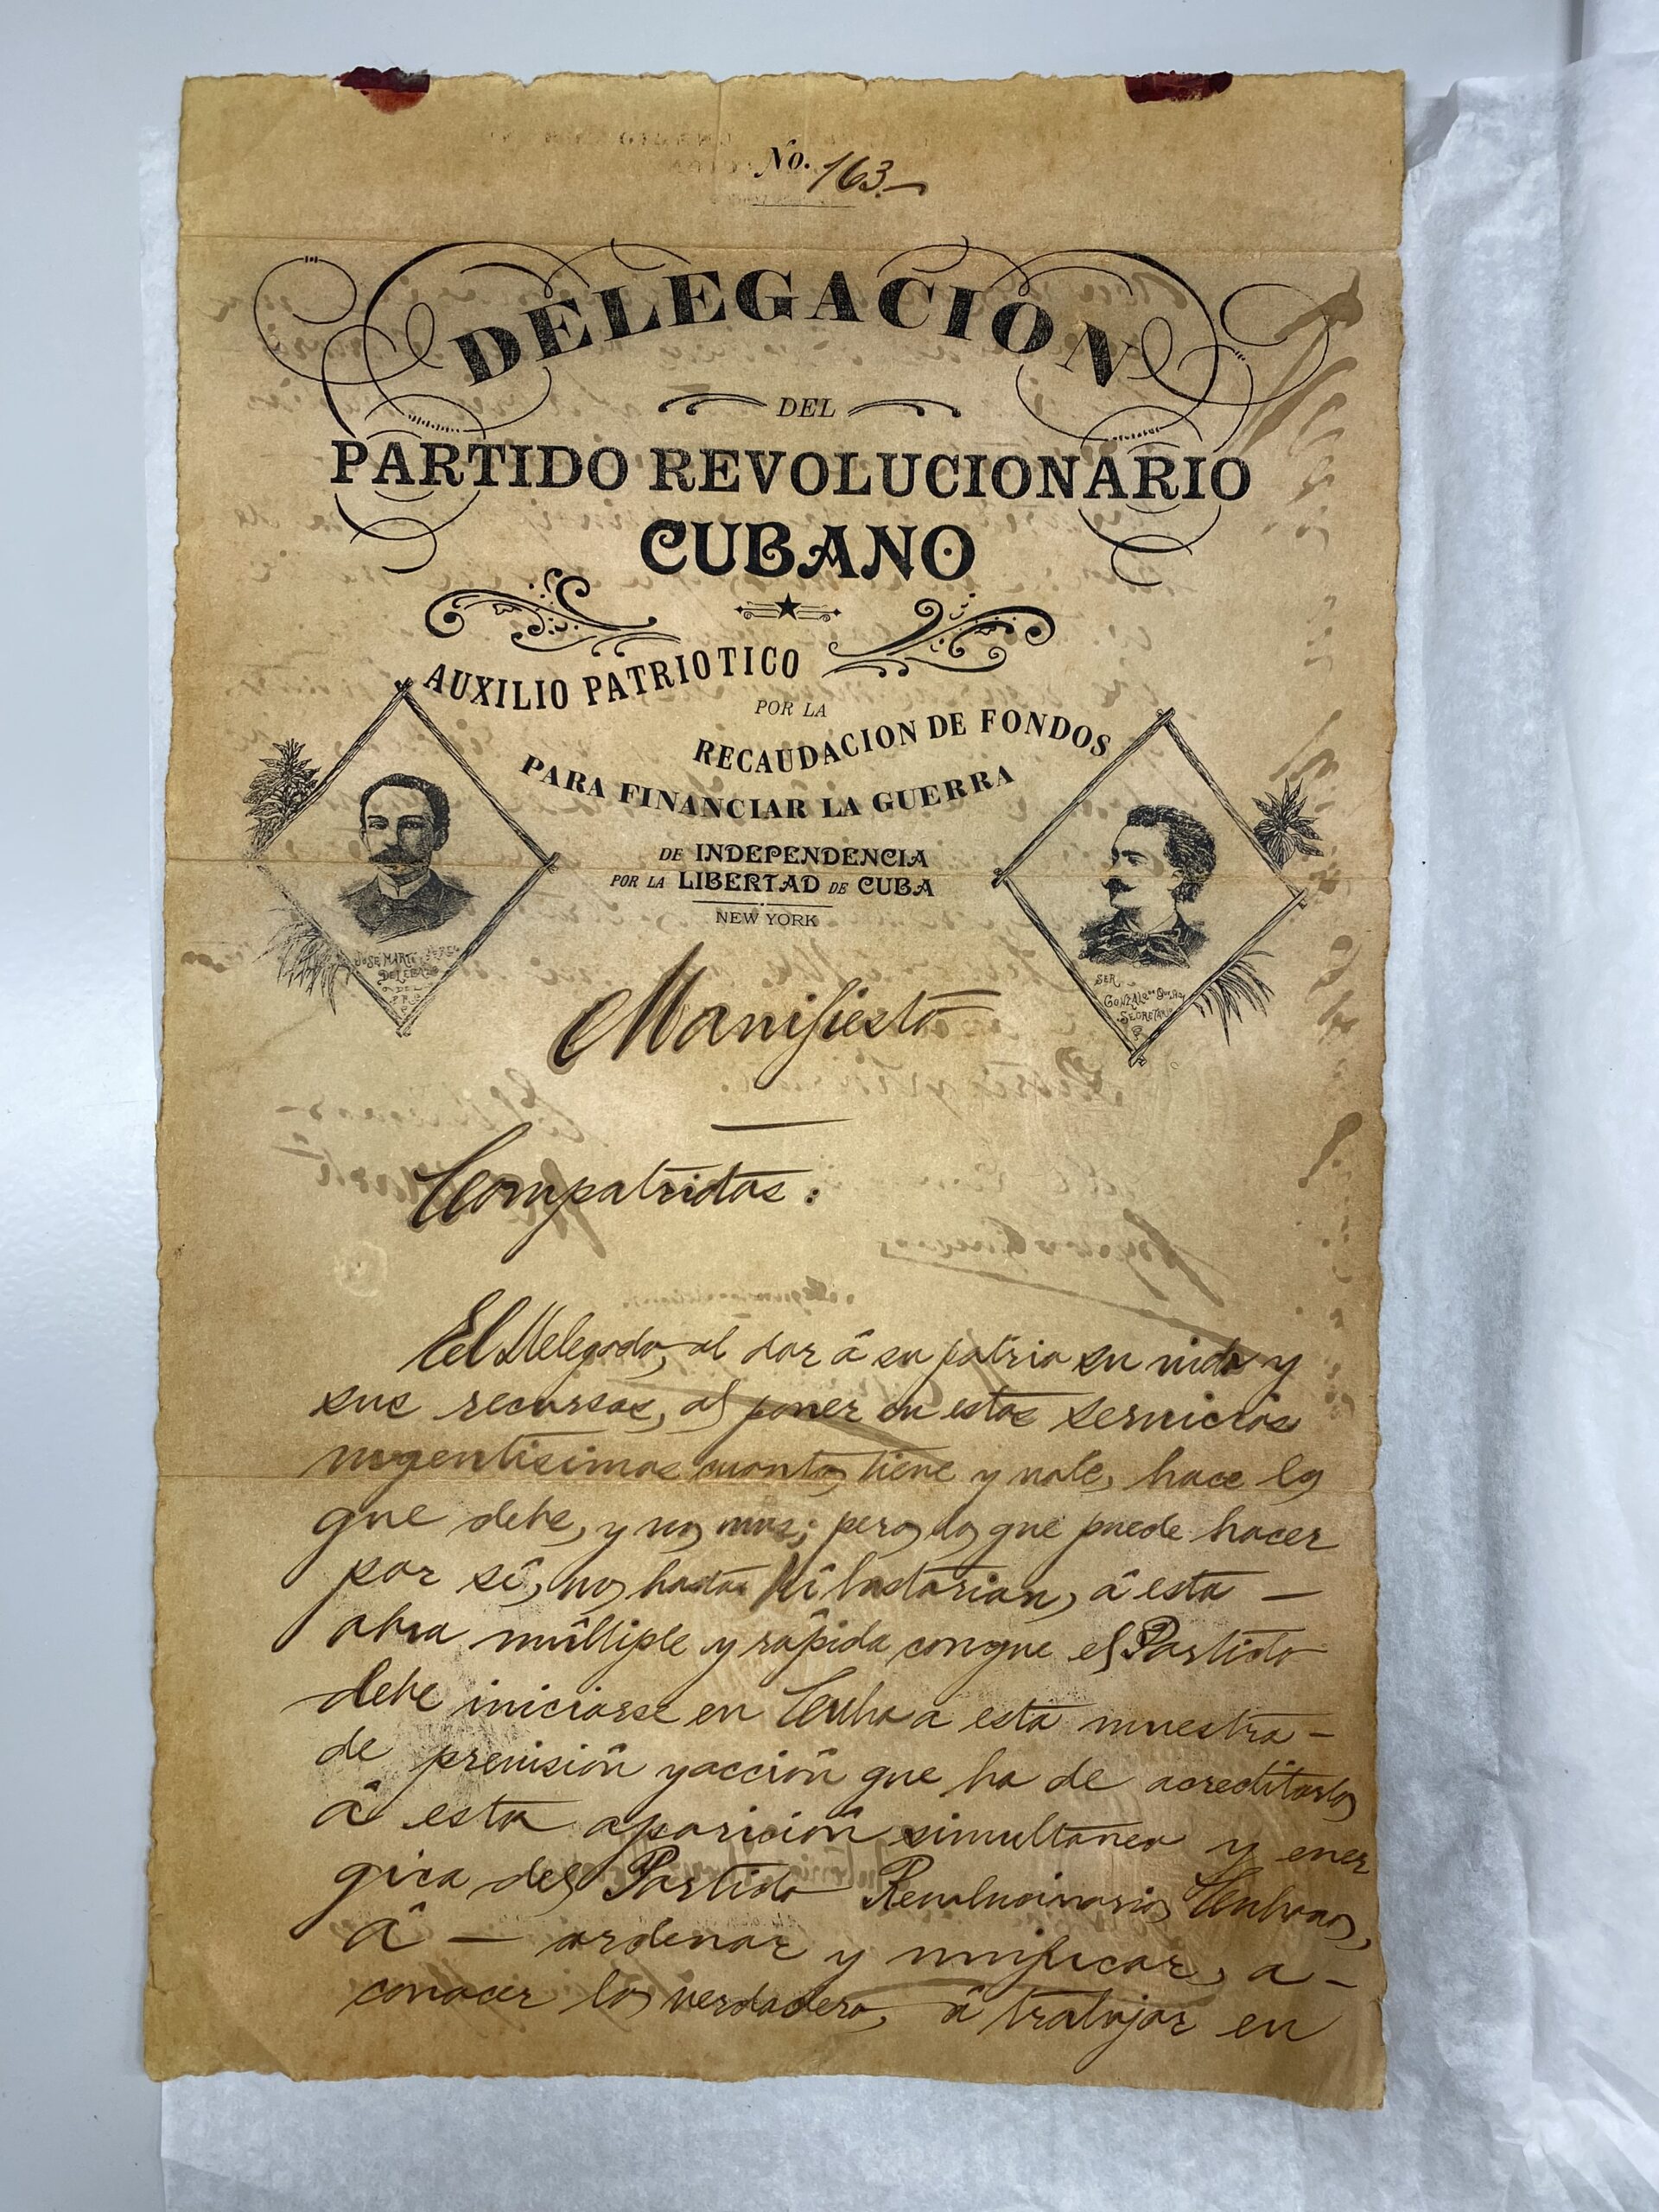 No. 163.
DELEGACION
DEL
PARTIDO REVOLUCIONARIO
CUBANO
AUXILIO PATRIOTICO
POR LA
RECAUDACION DE FONDOS
PARA FINANCIAR LA GUERRA
DE INDEPENDENCIA
POR LA LIBERTAD DE CUBA
NEW YORK
JOSE MARTI PEREZ
DELEGADO
DEL
P.R.C.
SER
GONZALO DE QUESADA
SECRETARIO
Manifiesto
Compatriotas:
El Delegado, al dar á su patria su vida y
sus recursos, al poner en estos servicios
urgentísimos cuanto tiene y vale, hace lo
que debe, y no mas; pero lo que puede hacer
por sí, no basta ni bastarían, á esta —
obra múltiple y rápida conque el Partido
debe iniciarse en Cuba a esta muestra —
de previsión y acción que ha de acreditarlo
á esta aparición simultanea y ener
gica del Partido Revolucionario Cubano,
á — ordenar y unificar, a —
conocer lo verdadero, á trabajar en